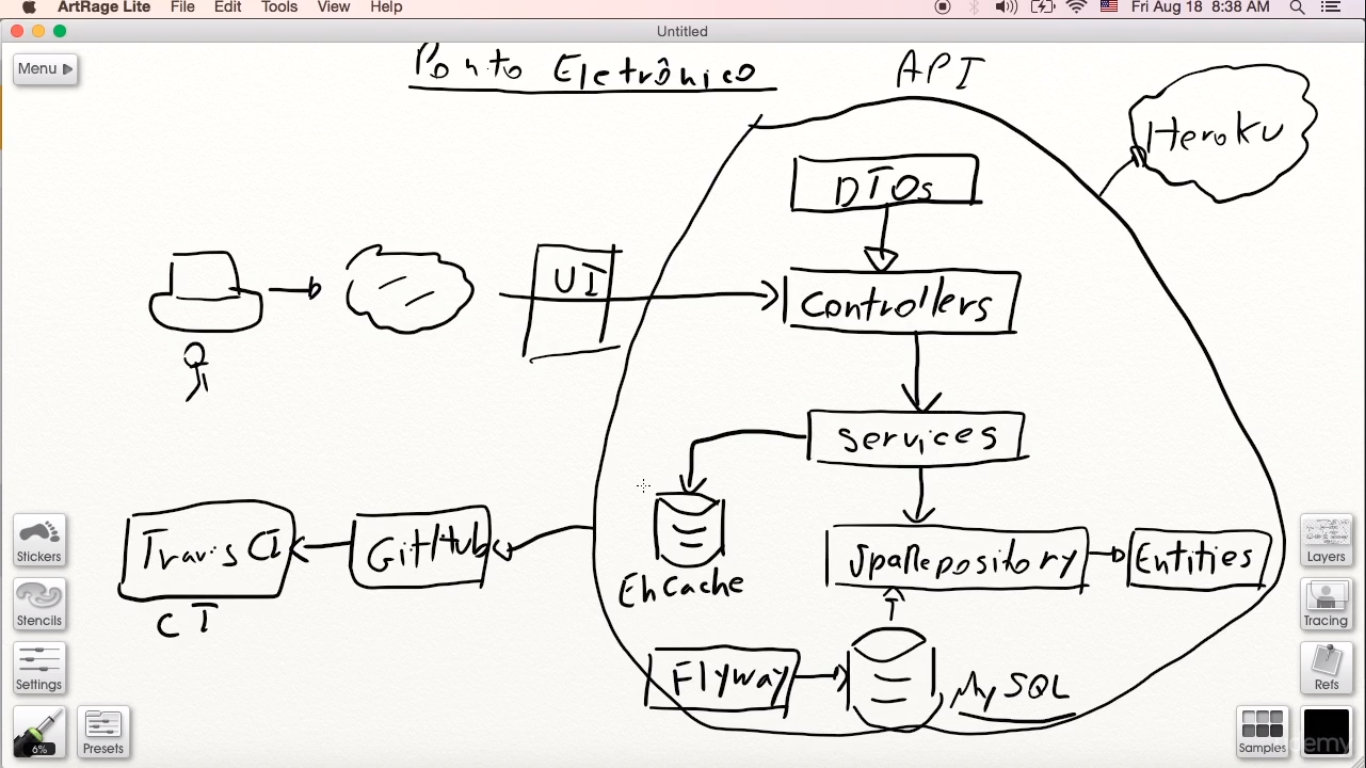 ArtRage Lite File Edit Tools View Help Fri Aug 18 8:38 AM
Untitled
Menu
Ponto Eletrônico
API
Heroku
DTOs
UI
Controllers
Services
Travis CI
GitHub
JpaRepository
Entities
EhCache
CI
Flyway
MySQL
Stickers
Stencils
Settings
6%
Presets
Layers
Tracing
Refs
Samples